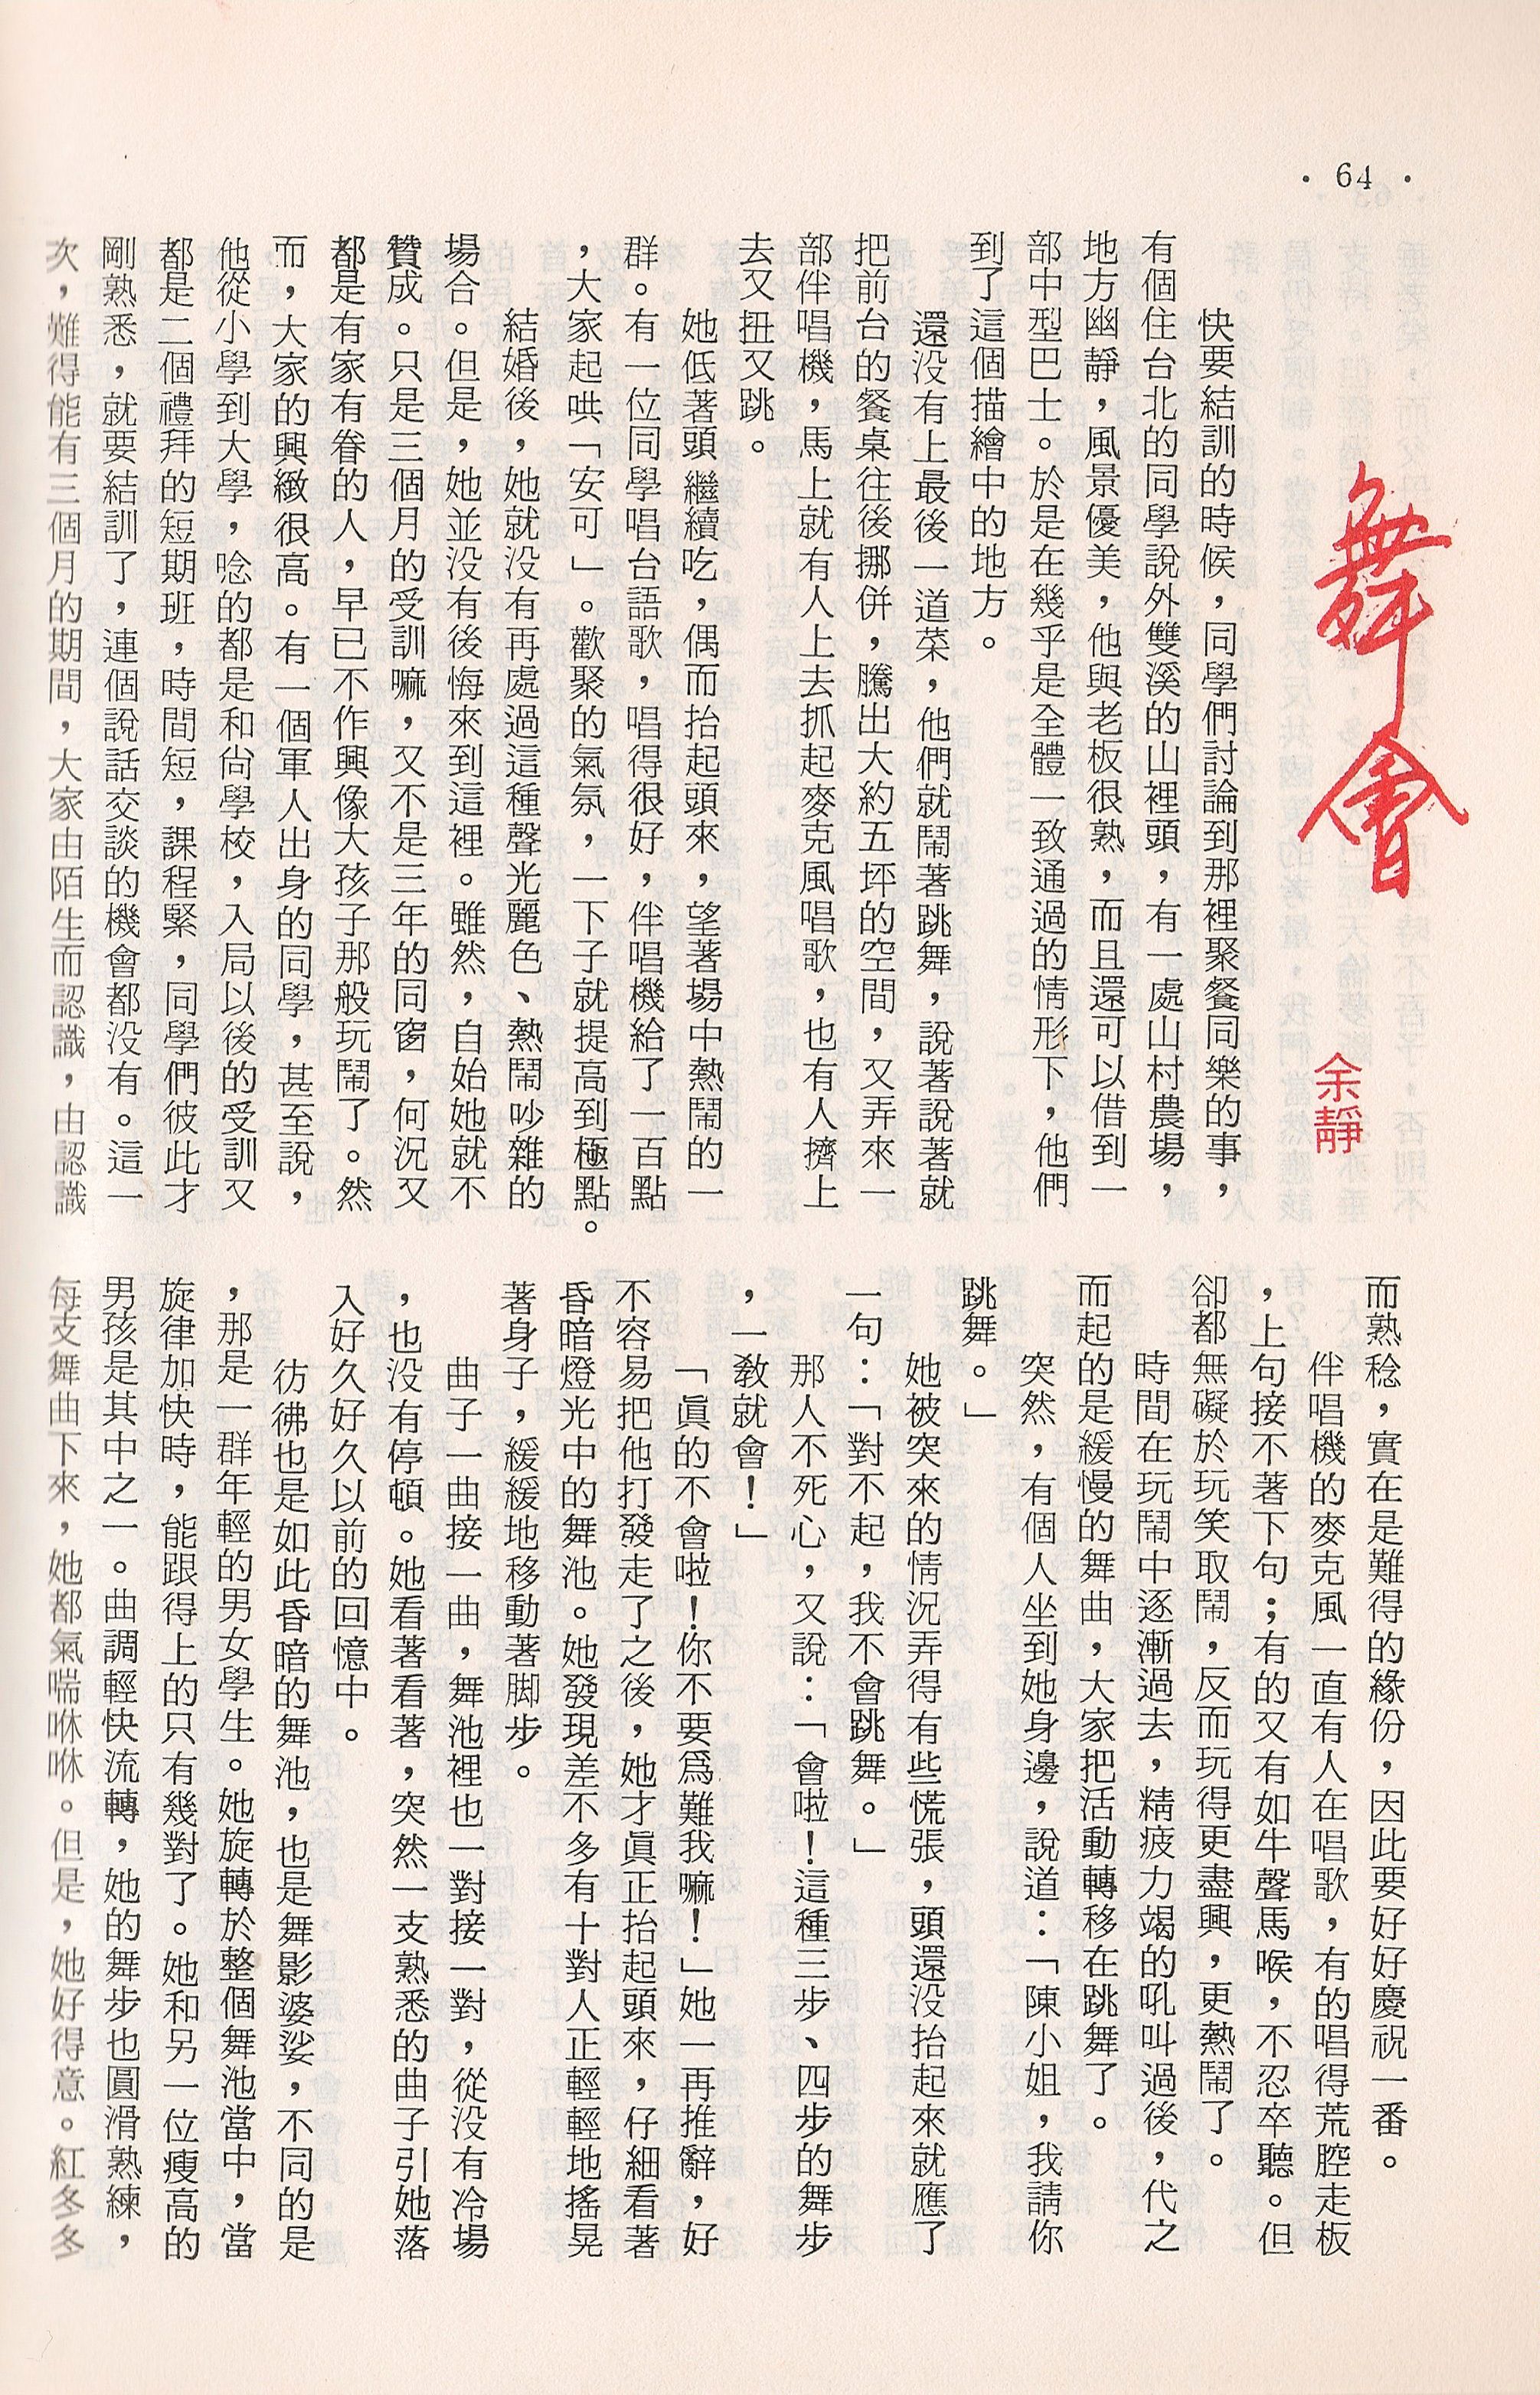 · 64 ·
舞會
余靜
快要結訓的時候，同學們討論到那裡聚餐同樂的事，
有個住台北的同學說外雙溪的山裡頭，有一處山村農場，
地方幽靜，風景優美，他與老板很熟，而且還可以借到一
部中型巴士。於是在幾乎是全體一致通過的情形下，他們
到了這個描繪中的地方。
還没有上最後一道菜，他們就鬧著跳舞，說著說著就
把前台的餐桌往後挪併，騰出大約五坪的空間，又弄來一
部伴唱機，馬上就有人上去抓起麥克風唱歌，也有人擠上
去又扭又跳。
她低著頭繼續吃，偶而抬起頭來，望著場中熱鬧的一
群。有一位同學唱台語歌，唱得很好，伴唱機給了一百點
，大家起哄「安可」。歡聚的氣氛，一下子就提高到極點。
結婚後，她就没有再處過這種聲光麗色、熱鬧吵雜的
場合。但是，她並没有後悔來到這裡。雖然，自始她就不
贊成。只是三個月的受訓嘛，又不是三年的同窗，何況又
都是有家有眷的人，早已不作興像大孩子那般玩鬧了。然
而，大家的興緻很高。有一個軍人出身的同學，甚至說，
他從小學到大學，唸的都是和尚學校，入局以後的受訓又
都是二個禮拜的短期班，時間短，課程緊，同學們彼此才
剛熟悉，就要結訓了，連個說話交談的機會都没有。這一
次，難得能有三個月的期間，大家由陌生而認識，由認識
而熟稔，實在是難得的緣份，因此要好好慶祝一番。
伴唱機的麥克風一直有人在唱歌，有的唱得荒腔走板
，上句接不著下句；有的又有如牛聲馬喉，不忍卒聽。但
卻都無礙於玩笑取鬧，反而玩得更盡興，更熱鬧了。
時間在玩鬧中逐漸過去，精疲力竭的吼叫過後，代之
而起的是緩慢的舞曲，大家把活動轉移在跳舞了。
突然，有個人坐到她身邊，說道：「陳小姐，我請你
跳舞。」
她被突來的情況弄得有些慌張，頭還没抬起來就應了
一句：「對不起，我不會跳舞。」
那人不死心，又說：「會啦！這種三步、四步的舞步
，一教就會！」
「眞的不會啦！你不要爲難我嘛！」她一再推辭，好
不容易把他打發走了之後，她才眞正抬起頭來，仔細看著
昏暗燈光中的舞池。她發現差不多有十對人正輕輕地搖晃
著身子，緩緩地移動著脚步。
曲子一曲接一曲，舞池裡也一對接一對，從没有冷場
，也没有停頓。她看著看著，突然一支熟悉的曲子引她落
入好久好久以前的回憶中。
彷彿也是如此昏暗的舞池，也是舞影婆娑，不同的是
，那是一群年輕的男女學生。她旋轉於整個舞池當中，當
旋律加快時，能跟得上的只有幾對了。她和另一位瘦高的
男孩是其中之一。曲調輕快流轉，她的舞步也圓滑熟練，
每支舞曲下來，她都氣喘咻咻。但是，她好得意。紅冬冬